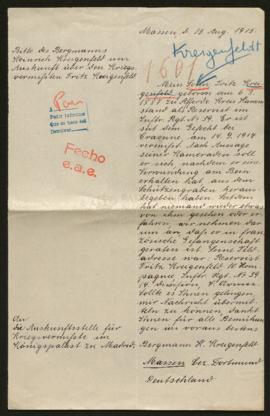 Massen, d. 18. Aug. 1915
Kreigenfeldt
Bitte des Bergmanns
Heinrich Kreigenfeldt um
Auskunft über den Kriegs-
vermißten Fritz Kreigenfeldt
Mein Sohn Fritz Krei-
genfeldt, geboren am 6.
1887 zu Afferde Kreis Hamm
stand als Reservist im
Inftr. Rgt. N. 54. Er ist
seit dem Gefecht bei
Craonne am 14.9.1914
vermißt. Nach Aussage
seiner Kameraden soll
er sich nachdem er eine
Verwundung am Bein
erhalten hat, aus dem
Schützengraben heraus-
begeben haben. Seitdem
hat niemand wieder etwas
von ihm gesehen oder er-
fahren. Wir nehmen daher
nun an, daß er in fran-
zösische Gefangenschaft
geraten ist. Seine Feld-
adresse war: Reservist
Fritz Kreigenfeldt Kom-
pagnie Inftr. Rgt. N. 54
14. Division, Armee
Sollte es Ihnen gelingen
mir Nachricht übermit-
teln zu können, dankt
Ihnen für alle Bemühun-
gen im voraus bestens
Bergmann H. Kreigenfeldt
Massen bez. Dortmund
Deutschland
Fecho
e.a.e.
An
die Auskunftsstelle für
Kriegsvermißte im
Königspalast zu Madrid.